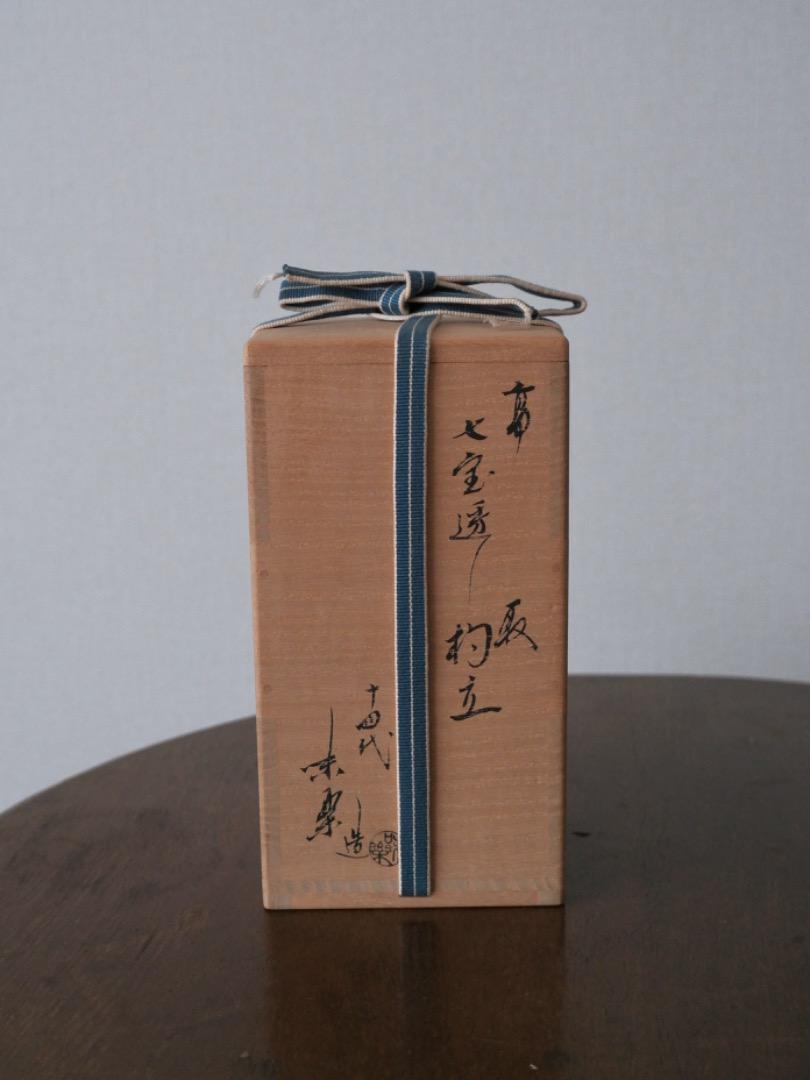 高取
七宝透し杓立
十四代
味楽造